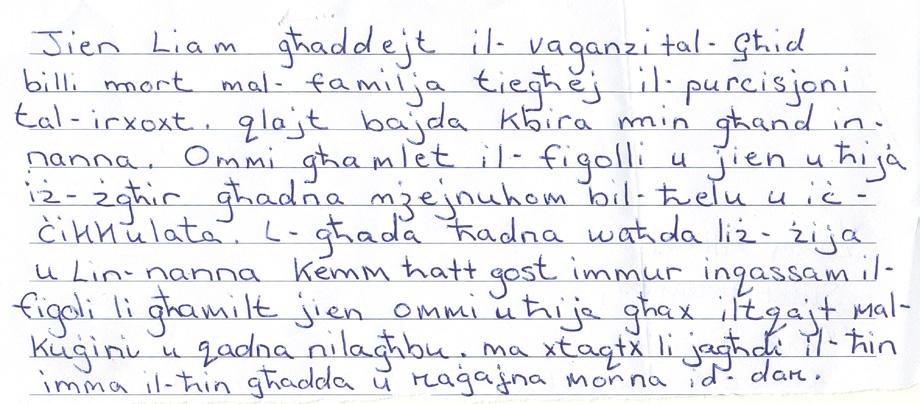 Jien Liam għaddejt il- vaganzi tal- Għid
billi mort mal- familja tiegħej il-purcisjoni
tal-irxoxt. qlajt bajda kbira min għand in-
nanna. Ommi għamlet il- figolli u jien u ħija
iż-żgħir għadna mżejnuhom bil-ħelu u iċ-
ċikkulata. L-għada ħadna waħda liż-żija
u Lin-nanna kemm ħatt gost immur inqassam il-
figoli li għamilt jien ommi u ħija għax iltqajt mal-
kuġini u qadna nilagħbu. ma xtaqtx li jagħdi il-ħin
imma il-ħin għadda u raġajna morna id-dar.